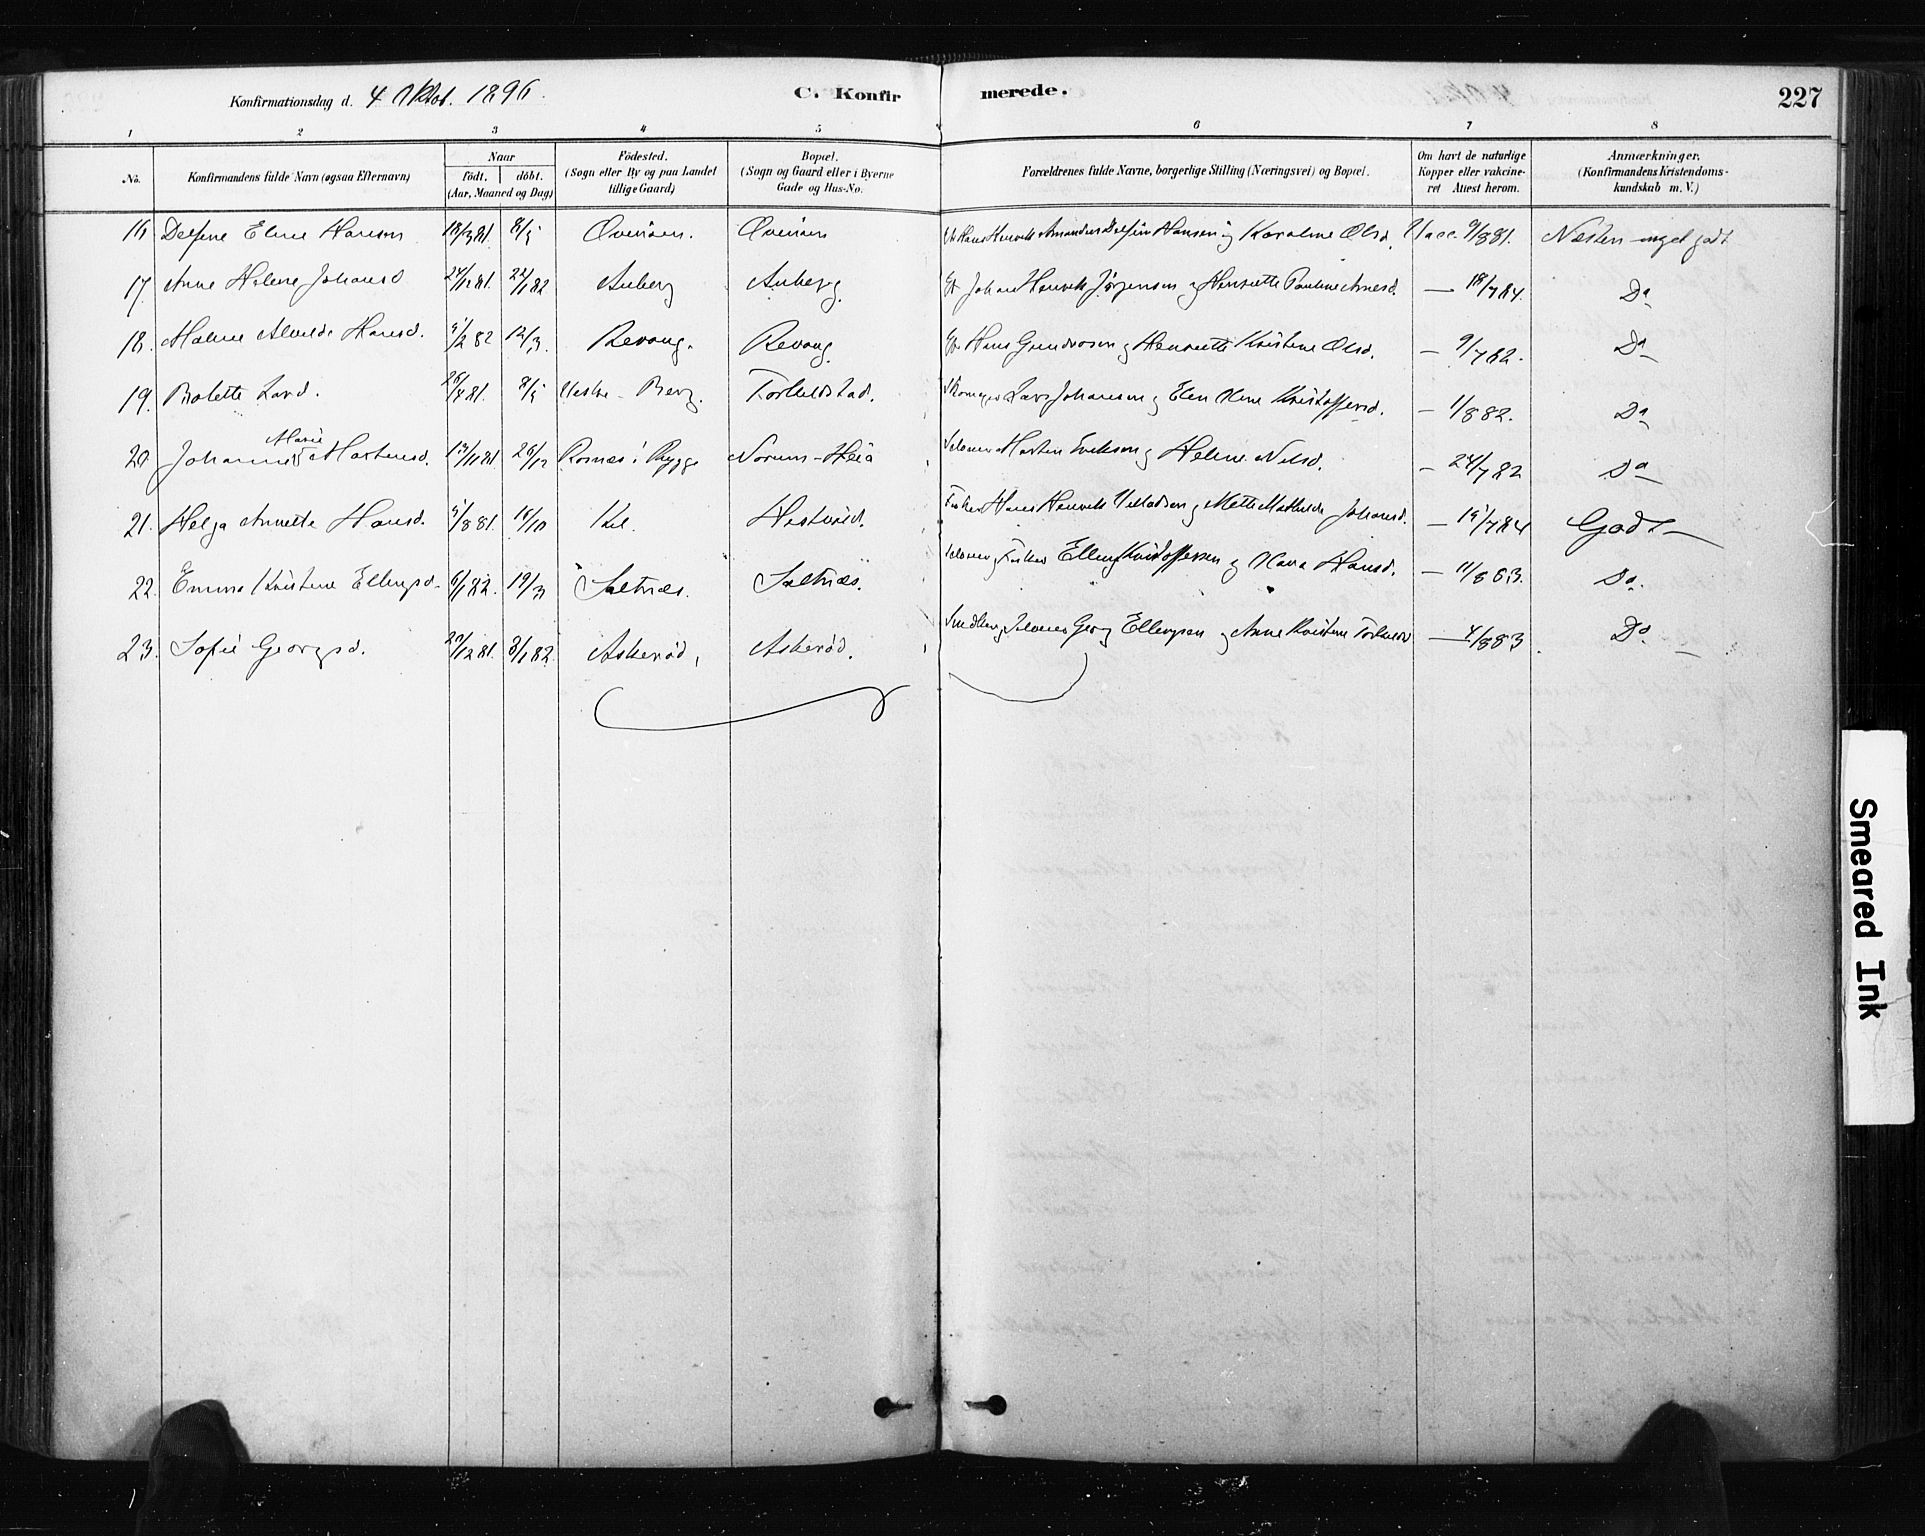 Konfirmationsdag d. 4 Oktob. 1896. C. Konfirmerede. 227
1 2 3 4 5 6 7 8
No. Konfirmandens fulde Navn (ogsaa Efternavn) Naar födt. döbt. (Aar, Maaned og Dag) Födested. (Sogn eller By og paa Landet tillige Gaard) Bopæl. (Sogn og Gaard eller i Byerne Gade og Hus-No. Forældrenes fulde Navne, borgerlige Stilling (Næringsvei) og Bopæl. Om havt de naturlige Kopper eller vakcineret Attest herom. Anmærkninger. (Konfirmandens Kristendomskundskab m. V.)
16 Delfine Elene Hansen 18/3 81. 8/5 Hans Henrik Amandus Delfin Hansen og Karoline Olsd. Vacc. 9/8 81. Næsten meget godt
17. Anne Helene Johansd 24/12 81. 22/1 82 Auberg Auberg. Johan Henrik Jörgensen og Henriette Pauline Arnesd. — 18/7 84. Do
18. Malene Alvilde Hansd. 5/2 82 12/3. Revaug. Revaug. Hans Gundersen og Henriette Kristine Olsd. — 9/7 82. Do
19. Bolette Larsd. 8/5 Berg. Torkildstad. Lars Johansen og Elen Oline Kristoffersd. — 1/8 82. Do
20 Johanne Marie Martinsd. 13/11 81. 26/12 Rosnæs i Rygge Norum-Heia Selveier Martin Eriksen og Helene Nilsd. — 24/7 82 Do
21. Helga Annette Hansd. 5/8 81. 16/10 Kil. Fisker Hans Henrik og Mette Mathilde Johansd. — 15/7 84 Godt
22. Emma Kristine Ellingsd. 6/1 82. 19/3 Saltnæs. Saltnæs. Selveier og Fisker Elling Kristoffersen og Maria Hansd. — 11/8 83. Do.
23. Sofie Georgsd. 20/12 81. 8/1 82. Askeröd, Askeröd. Selveier Georg Ellingsen og Anne Kristine — 4/8 83. Do
Smeared Ink